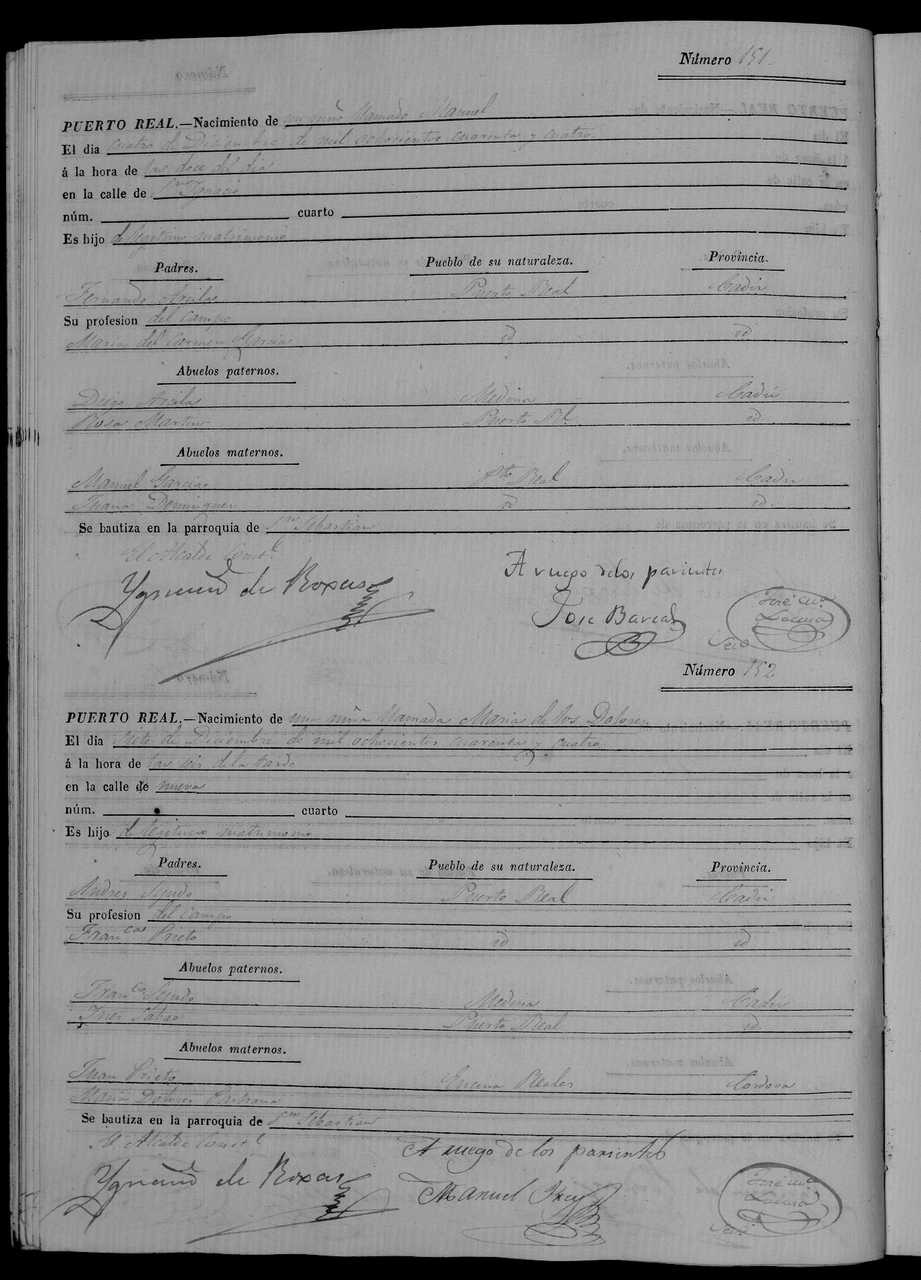 Número 151
PUERTO REAL.—Nacimiento de un niño llamado Manuel
El dia cuatro de Diciembre de mil ochocientos cuarenta y cuatro
á la hora de las doce del dia
en la calle de Sn Ygnacio
núm. cuarto
Es hijo de legitimo matrimonio
Padres. Pueblo de su naturaleza. Provincia.
Fernando Puerto Real Cadiz
Su profesion del campo
Maria del Carmen Garcia id id
Abuelos paternos.
Diego Medina Cadiz
Rosa Martin Puerto Rl id
Abuelos maternos.
Manuel Garcia Pto Real Cadiz
Juana Dominguez id id
Se bautiza en la parroquia de Sn Sebastian
El Alcalde Constl
Ygnacio de Roxas
A ruego de los parientes
Jose
José Ma
Srio
Número 152
PUERTO REAL.—Nacimiento de una niña llamada Maria de los Dolores
El dia siete de Diciembre de mil ochocientos cuarenta y cuatro
á la hora de las seis de la tarde
en la calle de nueva
núm. cuarto
Es hijo de legitimo matrimonio
Padres. Pueblo de su naturaleza. Provincia.
Andres Puerto Real Cadiz
Su profesion del campo
Franca Prieto id id
Abuelos paternos.
Franco Medina Cadiz
Ines Puerto Real id
Abuelos maternos.
Juan Prieto Encina Reales Cordova
Maria Dolores
Se bautiza en la parroquia de Sn Sebastian
El Alcalde Constl
Ygnacio de Roxas
A ruego de los parientes
Manuel
José Ma
Srio